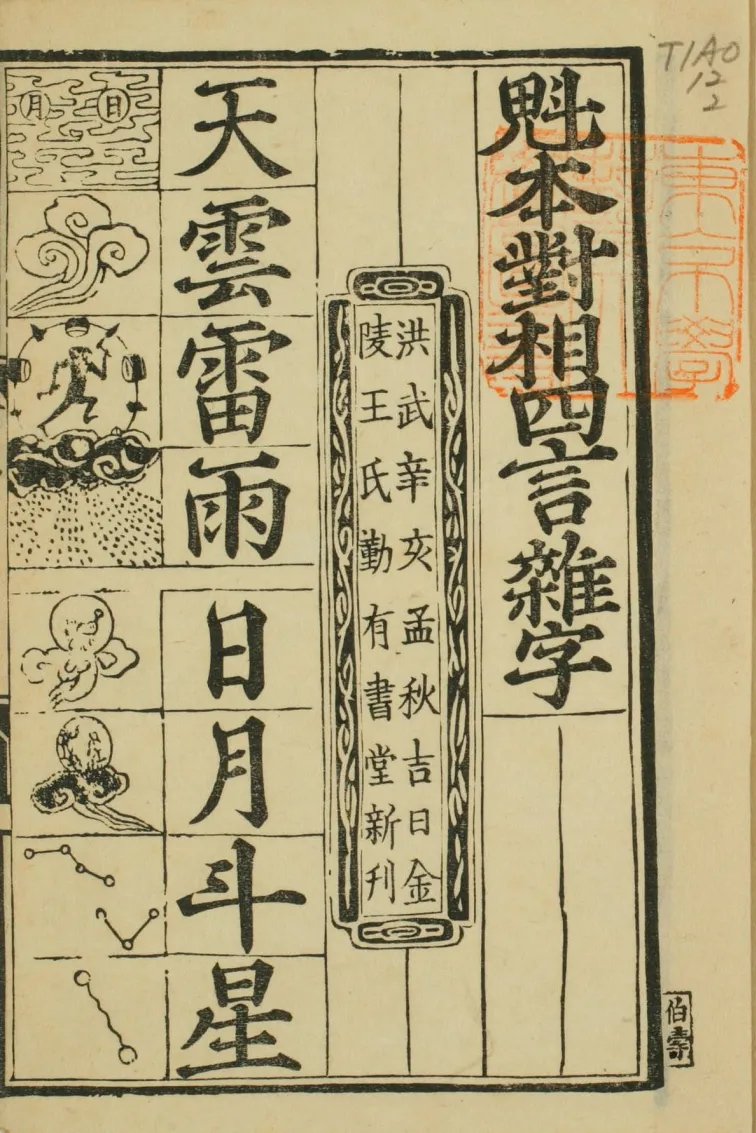 魁本對相四言雜字
洪武辛亥孟秋吉日金
陵王氏勤有書堂新刊
天雲雷雨
日月斗星
日
月
T1A0
12
2
伯壽